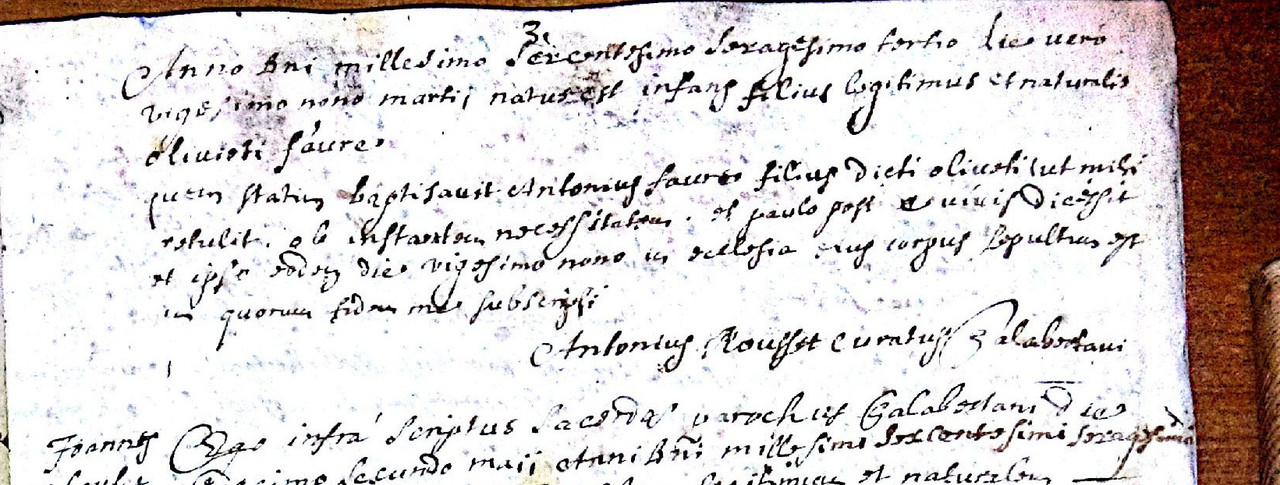 3.
Anno Dni millesimo sexcentesimo sexagesimo tertio die vero
vigesimo nono martii natus est infans filius legitimus et naturalis
oliveti faure
quem statim baptisavit Antonius faure filius dicti oliveti ut mihi
retulit. ob instantem necessitatem. et paulo post e vivis dicessit
et ipso eodem die vigesimo nono in ecclesia eius corpus sepultum est
in quorum fidem me subscripsi
Antonius Rousset curatus Galabertani
Joannes Ego infra scriptus sacerdos parochus Galabertani die
secundo maii Anni Dni millesimi sexcentesimi sexagesimi
et naturalem